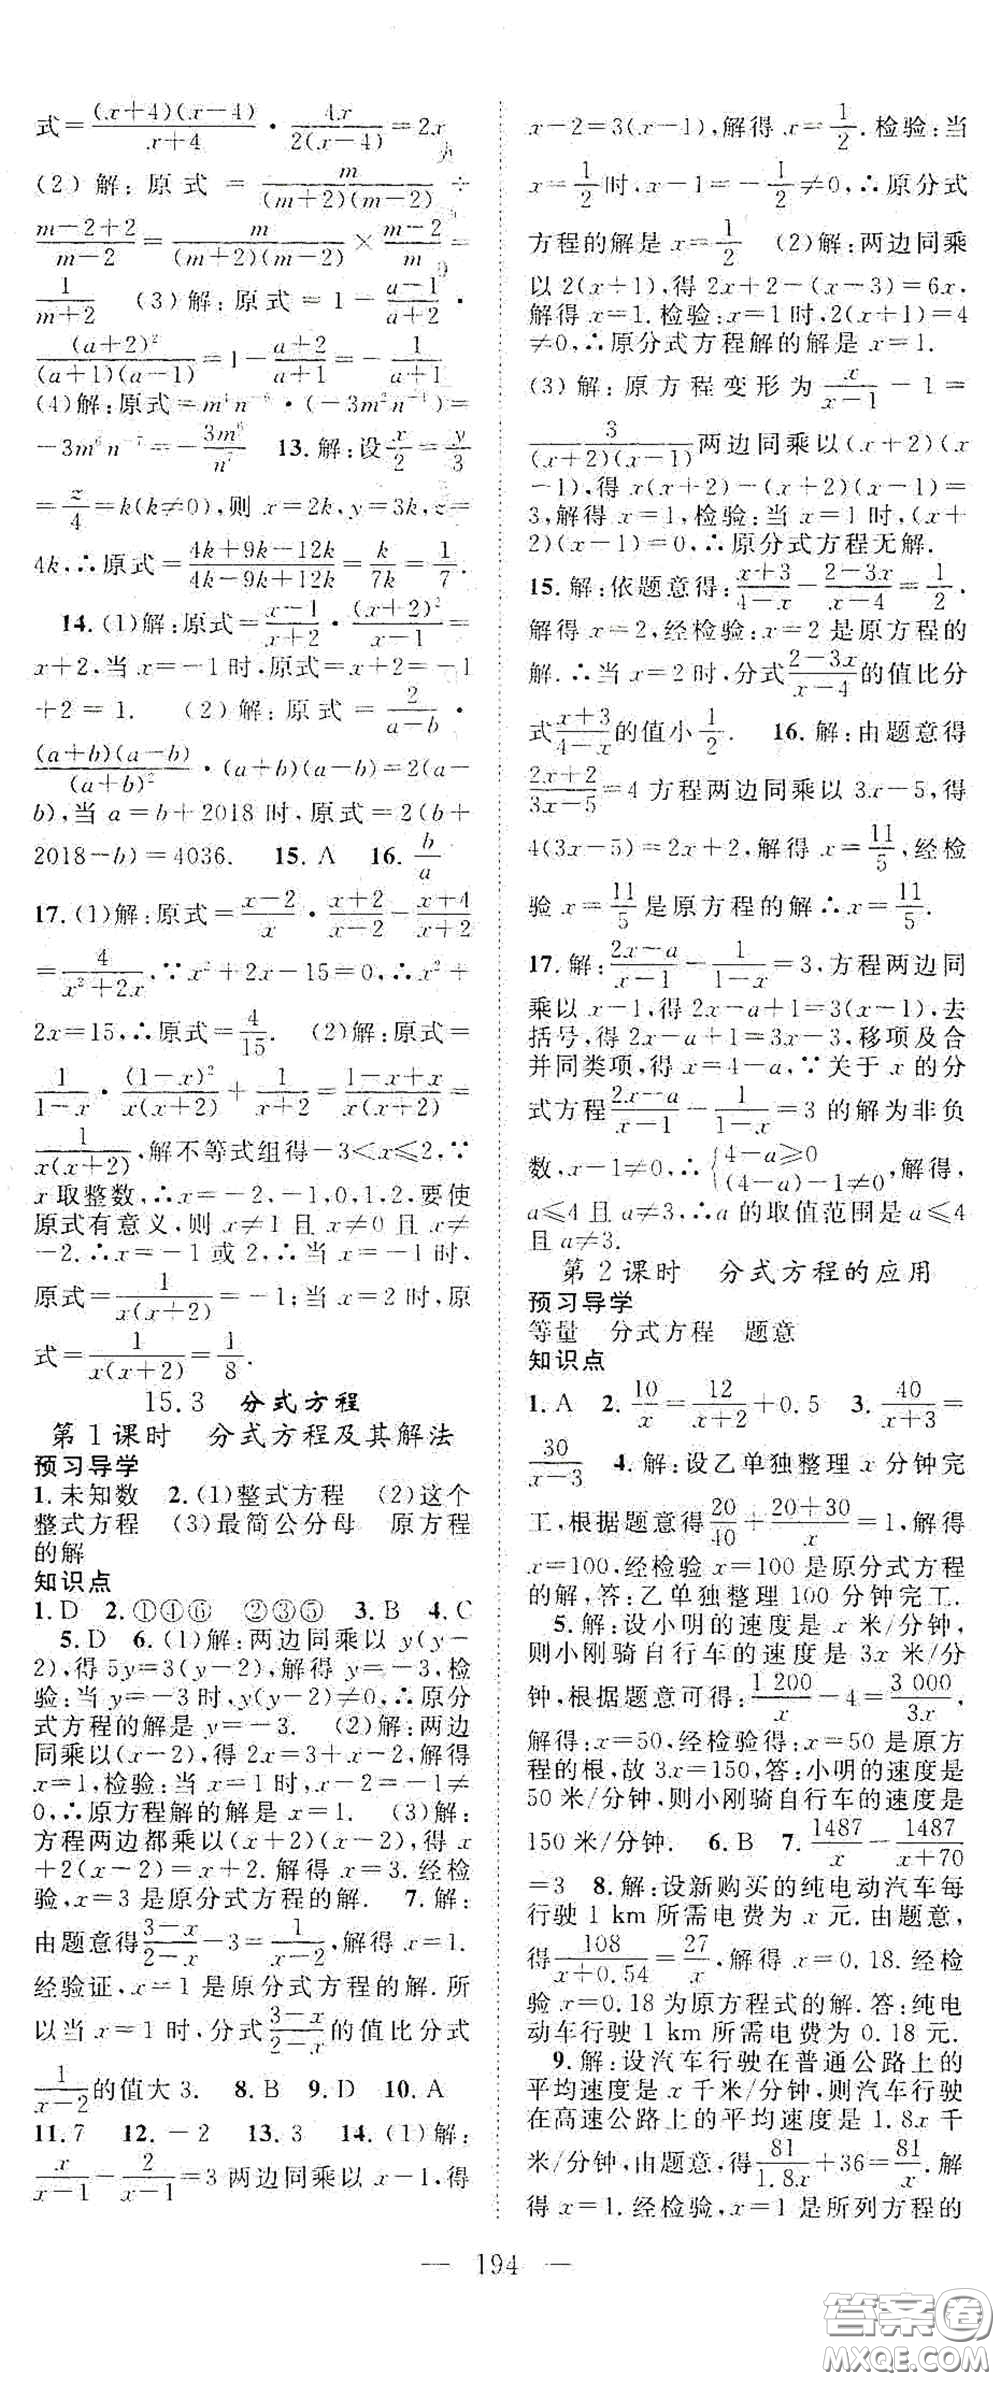 式=\frac{(x+4)(x-4)}{x+4}·\frac{4x}{2(x-4)}=2x
(2)解:原式=\frac{m}{(m+2)(m-2)}÷
\frac{m-2+2}{m-2}=\frac{m}{(m+2)(m-2)}×\frac{m-2}{m}=
\frac{1}{m+2} (3)解:原式=1-\frac{a-1}{a+2}·
\frac{(a+2)²}{(a+1)(a-1)}=1-\frac{a+2}{a+1}=-\frac{1}{a+1}
(4)解:原式=m⁴n⁻⁶·(-3m²n⁻¹)=
-3m⁶n⁻⁷=-\frac{3m⁶}{n⁷} 13.解:设\frac{x}{2}=\frac{y}{3}
=\frac{z}{4}=k(k≠0),则x=2k,y=3k,z=
4k,∴原式=\frac{4k+9k-12k}{4k-9k+12k}=\frac{k}{7k}=\frac{1}{7}.
14.(1)解:原式=\frac{x-1}{x+2}·\frac{(x+2)²}{x-1}=
x+2,当x=-1时,原式=x+2=-1
+2=1. (2)解:原式=\frac{2}{a-b}·
\frac{(a+b)(a-b)}{(a+b)²}·(a+b)(a-b)=2(a-
b),当a=b+2018时,原式=2(b+
2018-b)=4036. 15.A 16.\frac{b}{a}
17.(1)解:原式=\frac{x-2}{x}·\frac{x+2}{x-2}-\frac{x+4}{x+2}
=\frac{4}{x²+2x},∵x²+2x-15=0,∴x²+
2x=15,∴原式=\frac{4}{15}. (2)解:原式=
\frac{1}{1-x}·\frac{(1-x)²}{x(x+2)}+\frac{1}{x+2}=\frac{1-x+x}{x(x+2)}=
\frac{1}{x(x+2)},解不等式组得-3<x≤2,∵
x取整数,∴x=-2,-1,0,1,2,要使
原式有意义,则x≠1且x≠0且x≠
-2.∴x=-1或2,∴当x=-1时,
原式=\frac{1}{x(x+2)}=-1;当x=2时,原
式=\frac{1}{x(x+2)}=\frac{1}{8}.
15.3 分式方程
第1课时 分式方程及其解法
预习导学
1.未知数 2.(1)整式方程 (2)这个
整式方程 (3)最简公分母 原方程
的解
知识点
1.D 2.①④⑥ ②③⑤ 3.B 4.C
5.D 6.(1)解:两边同乘以y(y-
2),得5y=3(y-2),解得y=-3,检
验:当y=-3时,y(y-2)≠0,∴原分
式方程的解是y=-3. (2)解:两边
同乘以(x-2),得2x=3+x-2.解得
x=1,检验:当x=1时,x-2=-1≠
0,∴原方程解的解是x=1. (3)解:
方程两边都乘以(x+2)(x-2),得x
+2(x-2)=x+2.解得x=3.经检
验,x=3是原分式方程的解. 7.解:
由题意得\frac{3-x}{2-x}-3=\frac{1}{x-2},解得x=1.
经验证,x=1是原分式方程的解.所
以当x=1时,分式\frac{3-x}{2-x}的值比分式
\frac{1}{x-2}的值大3. 8.B 9.D 10.A
11.7 12.-2 13.3 14.(1)解:
\frac{x}{x-1}-\frac{2}{x-1}=3两边同乘以x-1,得
x-2=3(x-1),解得x=\frac{1}{2}.检验:当
x=\frac{1}{2}时,x-1=-\frac{1}{2}≠0,∴原分式
方程的解是x=\frac{1}{2} (2)解:两边同乘
以2(x+1),得2x+2-(x-3)=6x.
解得x=1.检验:x=1时,2(x+1)=4
≠0,∴原分式方程解的解是x=1.
(3)解:原方程变形为\frac{x}{x-1}-1=
\frac{3}{(x+2)(x-1)}两边同乘以(x+2)(x
-1),得x(x+2)-(x+2)(x-1)=
3,解得x=1,检验:当x=1时,(x+
2)(x-1)=0,∴原分式方程无解.
15.解:依题意得:\frac{x+3}{4-x}-\frac{2-3x}{x-4}=\frac{1}{2}.
解得x=2,经检验:x=2是原方程的
解.∴当x=2时,分式\frac{2-3x}{x-4}的值比分
式\frac{x+3}{4-x}的值小\frac{1}{2}. 16.解:由题意得
\frac{2x+2}{3x-5}=4方程两边同乘以3x-5,得
4(3x-5)=2x+2,解得x=\frac{11}{5},经检
验x=\frac{11}{5}是原方程的解∴x=\frac{11}{5}.
17.解:\frac{2x-a}{x-1}-\frac{1}{1-x}=3,方程两边同
乘以x-1,得2x-a+1=3(x-1),去
括号,得2x-a+1=3x-3,移项及合
并同类项,得x=4-a,∵关于x的分
式方程\frac{2x-a}{x-1}-\frac{1}{1-x}=3的解为非负
数,x-1≠0,∴{4-a≥0 (4-a)-1≠0,解得,
a≤4且a≠3,∴a的取值范围是a≤4
且a≠3.
第2课时 分式方程的应用
预习导学
等量 分式方程 题意
知识点
1.A 2.\frac{10}{x}=\frac{12}{x+2}+0.5 3.\frac{40}{x+3}=
\frac{30}{x-3} 4.解:设乙单独整理x分钟完
工,根据题意得\frac{20}{40}+\frac{20+30}{x}=1,解得
x=100,经检验x=100是原分式方程
的解,答:乙单独整理100分钟完工.
5.解:设小明的速度是x米/分钟,
则小刚骑自行车的速度是3x米/分
钟,根据题意可得:\frac{1 200}{x}-4=\frac{3 000}{3x},
解得:x=50,经检验得:x=50是原方
程的根,故3x=150,答:小明的速度是
50米/分钟,则小刚骑自行车的速度是
150米/分钟. 6.B 7.\frac{1487}{x}-\frac{1487}{x+70}
=3 8.解:设新购买的纯电动汽车每
行驶1km所需电费为x元.由题意,
得\frac{108}{x+0.54}=\frac{27}{x},解得x=0.18.经检
验x=0.18为原方程式的解.答:纯电
动车行驶1km所需电费为0.18元.
9.解:设汽车行驶在普通公路上的
平均速度是x千米/分钟,则汽车行驶
在高速公路上的平均速度是1.8x千
米/分钟,由题意,得\frac{81}{1.8x}+36=\frac{81}{x}.解
得x=1.经检验,x=1是所列方程的
— 194 —
答案圈
MXQE.COM